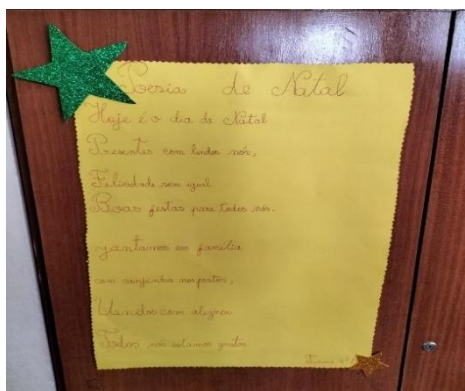 Poesia de Natal
Hoje é o dia de Natal
Presentes com lindos nós,
Felicidade sem igual
Boas festas para todos nós.
Jantamos em família
com anjinhos nos pratos,
Unidos com alegria
Todos nós estamos gratos